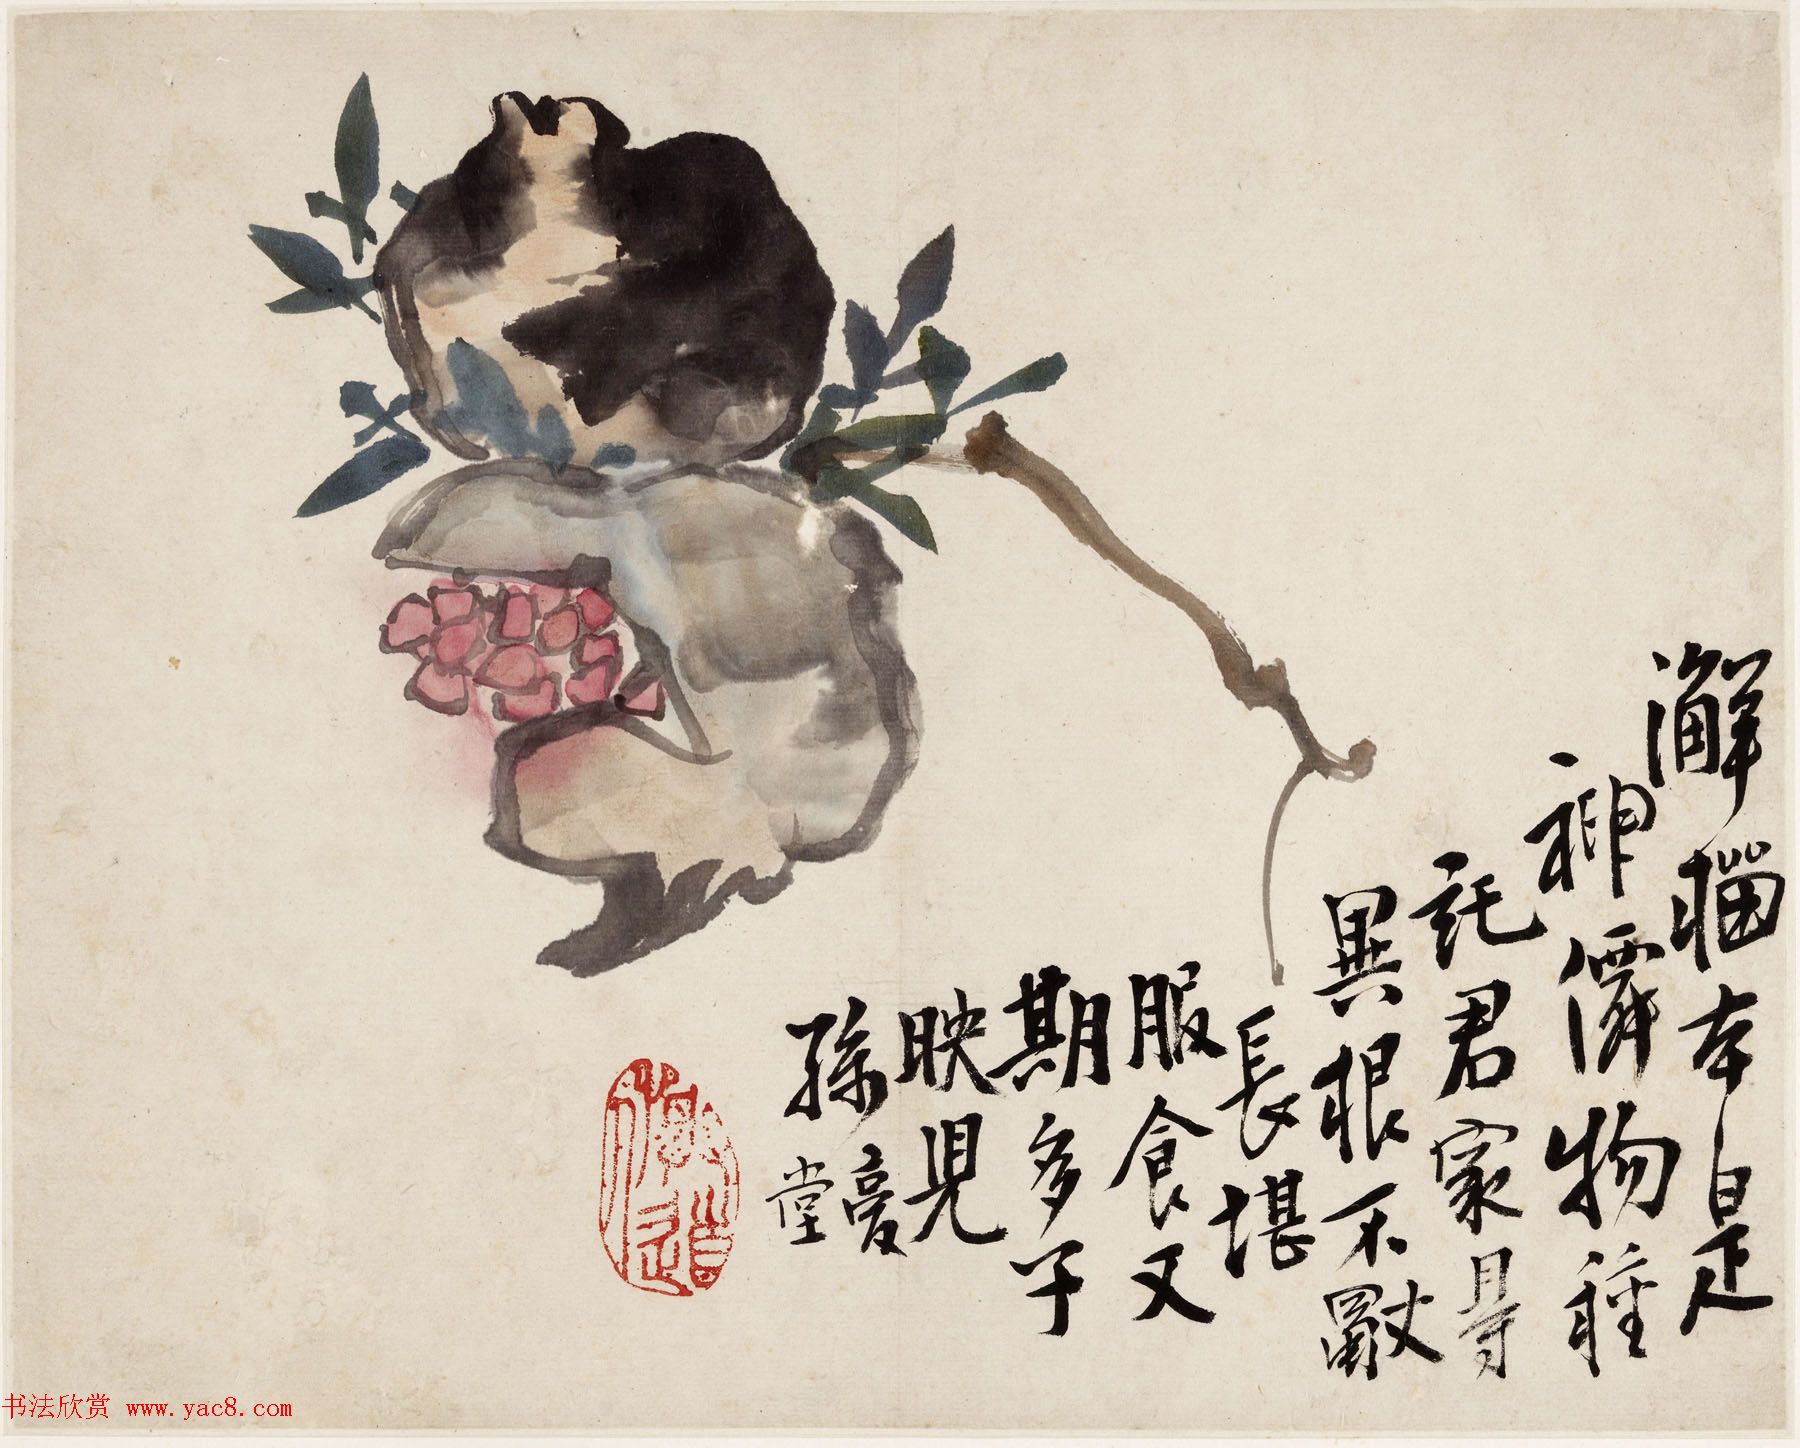 澥榴本是
神僊物種
託君家得
異根不
長堪
服食又
期多子
映兒
孫 复堂
书法欣赏 www.yac8.com